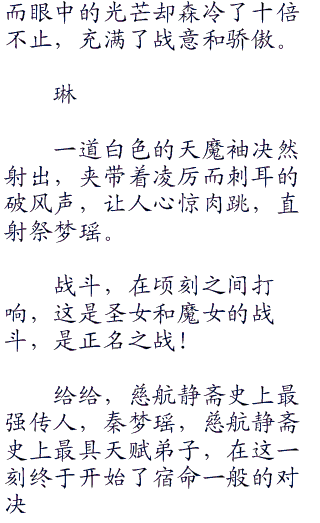 而眼中的光芒却森冷了十倍
不止，充满了战意和骄傲。
琳
一道白色的天魔袖决然
射出，夹带着凌厉而刺耳的
破风声，让人心惊肉跳，直
射祭梦瑶。
战斗，在顷刻之间打
响，这是圣女和魔女的战
斗，是正名之战！
给给，慈航静斋史上最
强传人，秦梦瑶，慈航静斋
史上最具天赋弟子，在这一
刻终于开始了宿命一般的对
决